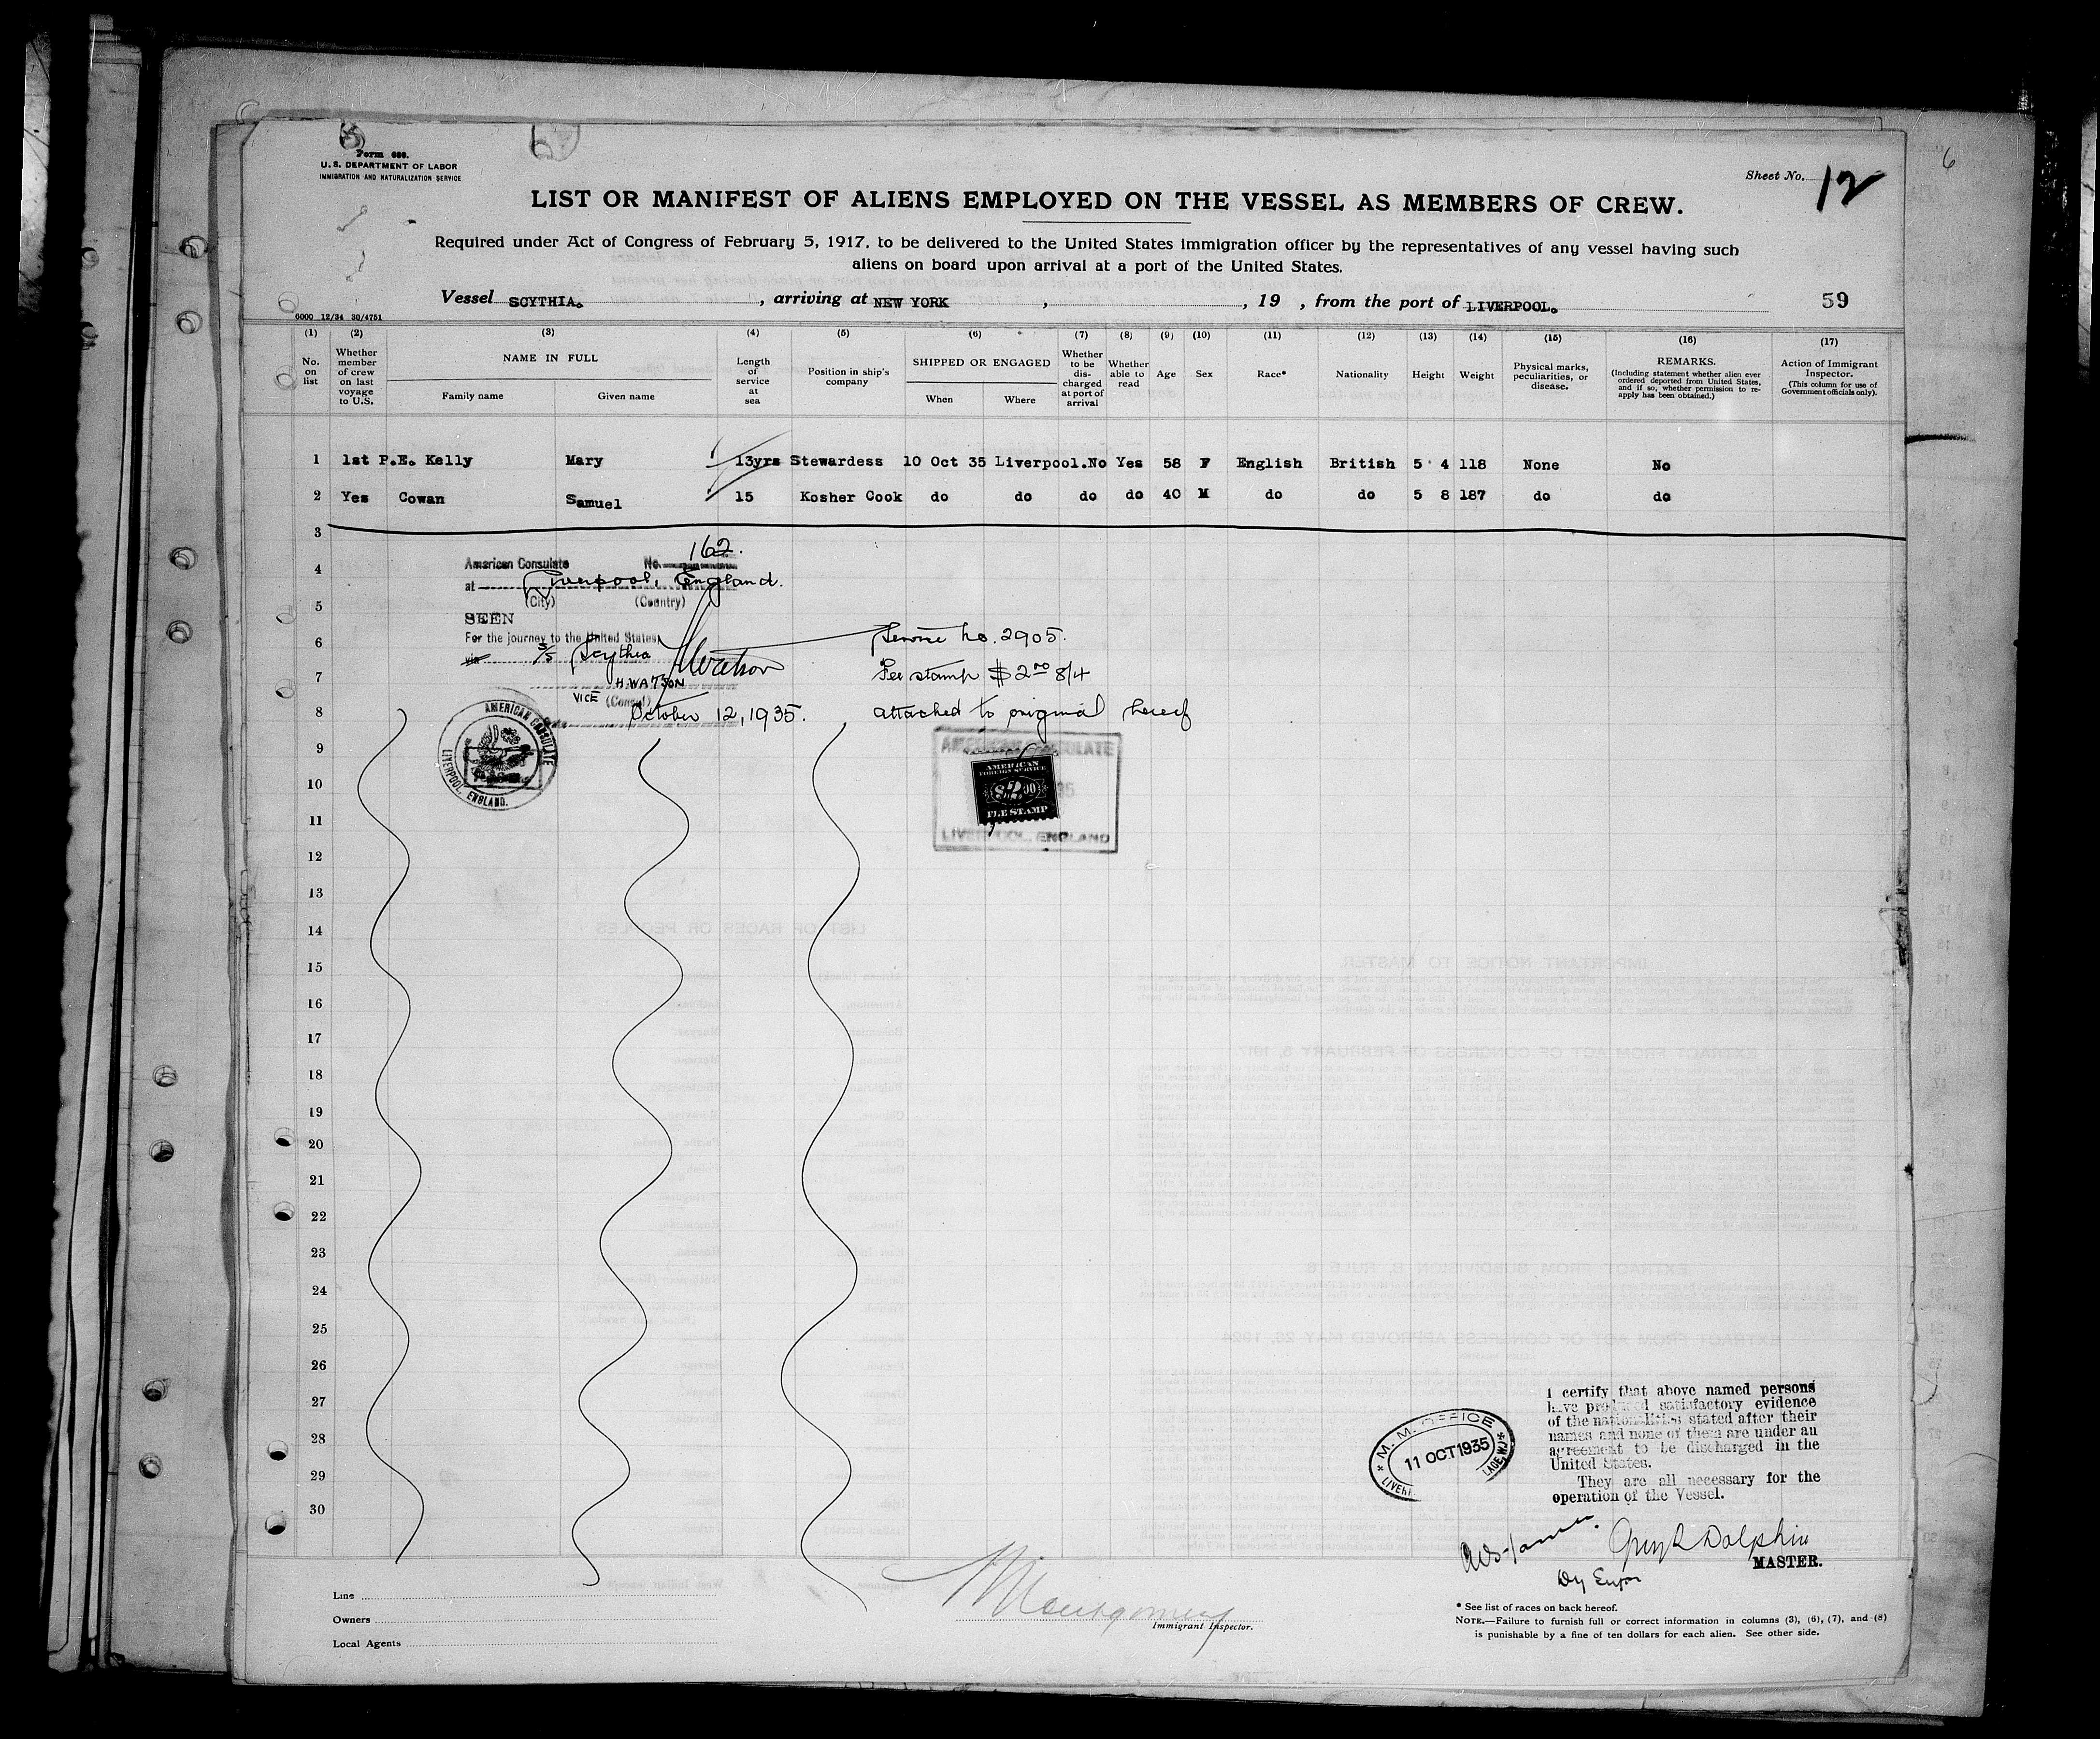 6
Form 680.
U. S. DEPARTMENT OF LABOR
IMMIGRATION AND NATURALIZATION SERVICE
Sheet No. 12
LIST OR MANIFEST OF ALIENS EMPLOYED ON THE VESSEL AS MEMBERS OF CREW.
Required under Act of Congress of February 5, 1917, to be delivered to the United States immigration officer by the representatives of any vessel having such
aliens on board upon arrival at a port of the United States.
Vessel SCYTHIA. , arriving at NEW YORK , , 19 , from the port of LIVERPOOL. 59
6000 12/34 30/4751
(1) (2) (3) (4) (5) (6) (7) (8) (9) (10) (11) (12) (13) (14) (15) (16) (17)
No. on list
Whether member of crew on last voyage to U.S.
NAME IN FULL
Family name Given name
Length of service at sea
Position in ship's company
SHIPPED OR ENGAGED
When Where
Whether to be discharged at port of arrival
Whether able to read
Age
Sex
Race*
Nationality
Height
Weight
Physical marks, peculiarities, or disease.
REMARKS.
(Including statement whether alien ever ordered deported from United States, and if so, whether permission to re-apply has been obtained.)
Action of Immigrant Inspector.
(This column for use of Government officials only).
1 1st P.E. Kelly Mary 13yrs Stewardess 10 Oct 35 Liverpool. No Yes 58 F English British 5 4 118 None No
2 Yes Cowan Samuel 15 Kosher Cook do do do do 40 M do do 5 8 187 do do
3
4
5
6
7
8
9
10
11
12
13
14
15
16
17
18
19
20
21
22
23
24
25
26
27
28
29
30
American Consulate No. 162.
at Liverpool, England.
(City) (Country)
SEEN
For the journey to the United States
via S/S Scythia
HWatson
H. WATSON
VICE (Consul)
October 12, 1935.
Service No. 2905.
Fee stamp $2.00 8/4
attached to original hereof
AMERICAN CONSULATE
LIVERPOOL, ENGLAND.
AMERICAN CONSULATE
AMERICAN
FOREIGN SERVICE
$2.00
FEE STAMP
LIVERPOOL, ENGLAND
M. M. OFFICE
11 OCT 1935
I certify that above named persons
have produced satisfactory evidence
of the nationalities stated after their
names and none of them are under an
agreement to be discharged in the
United States.
They are all necessary for the
operation of the Vessel.
Dolphin
MASTER.
Line
Owners
Local Agents
Montgomery
Immigrant Inspector.
* See list of races on back hereof.
NOTE.—Failure to furnish full or correct information in columns (3), (6), (7), and (8)
is punishable by a fine of ten dollars for each alien. See other side.